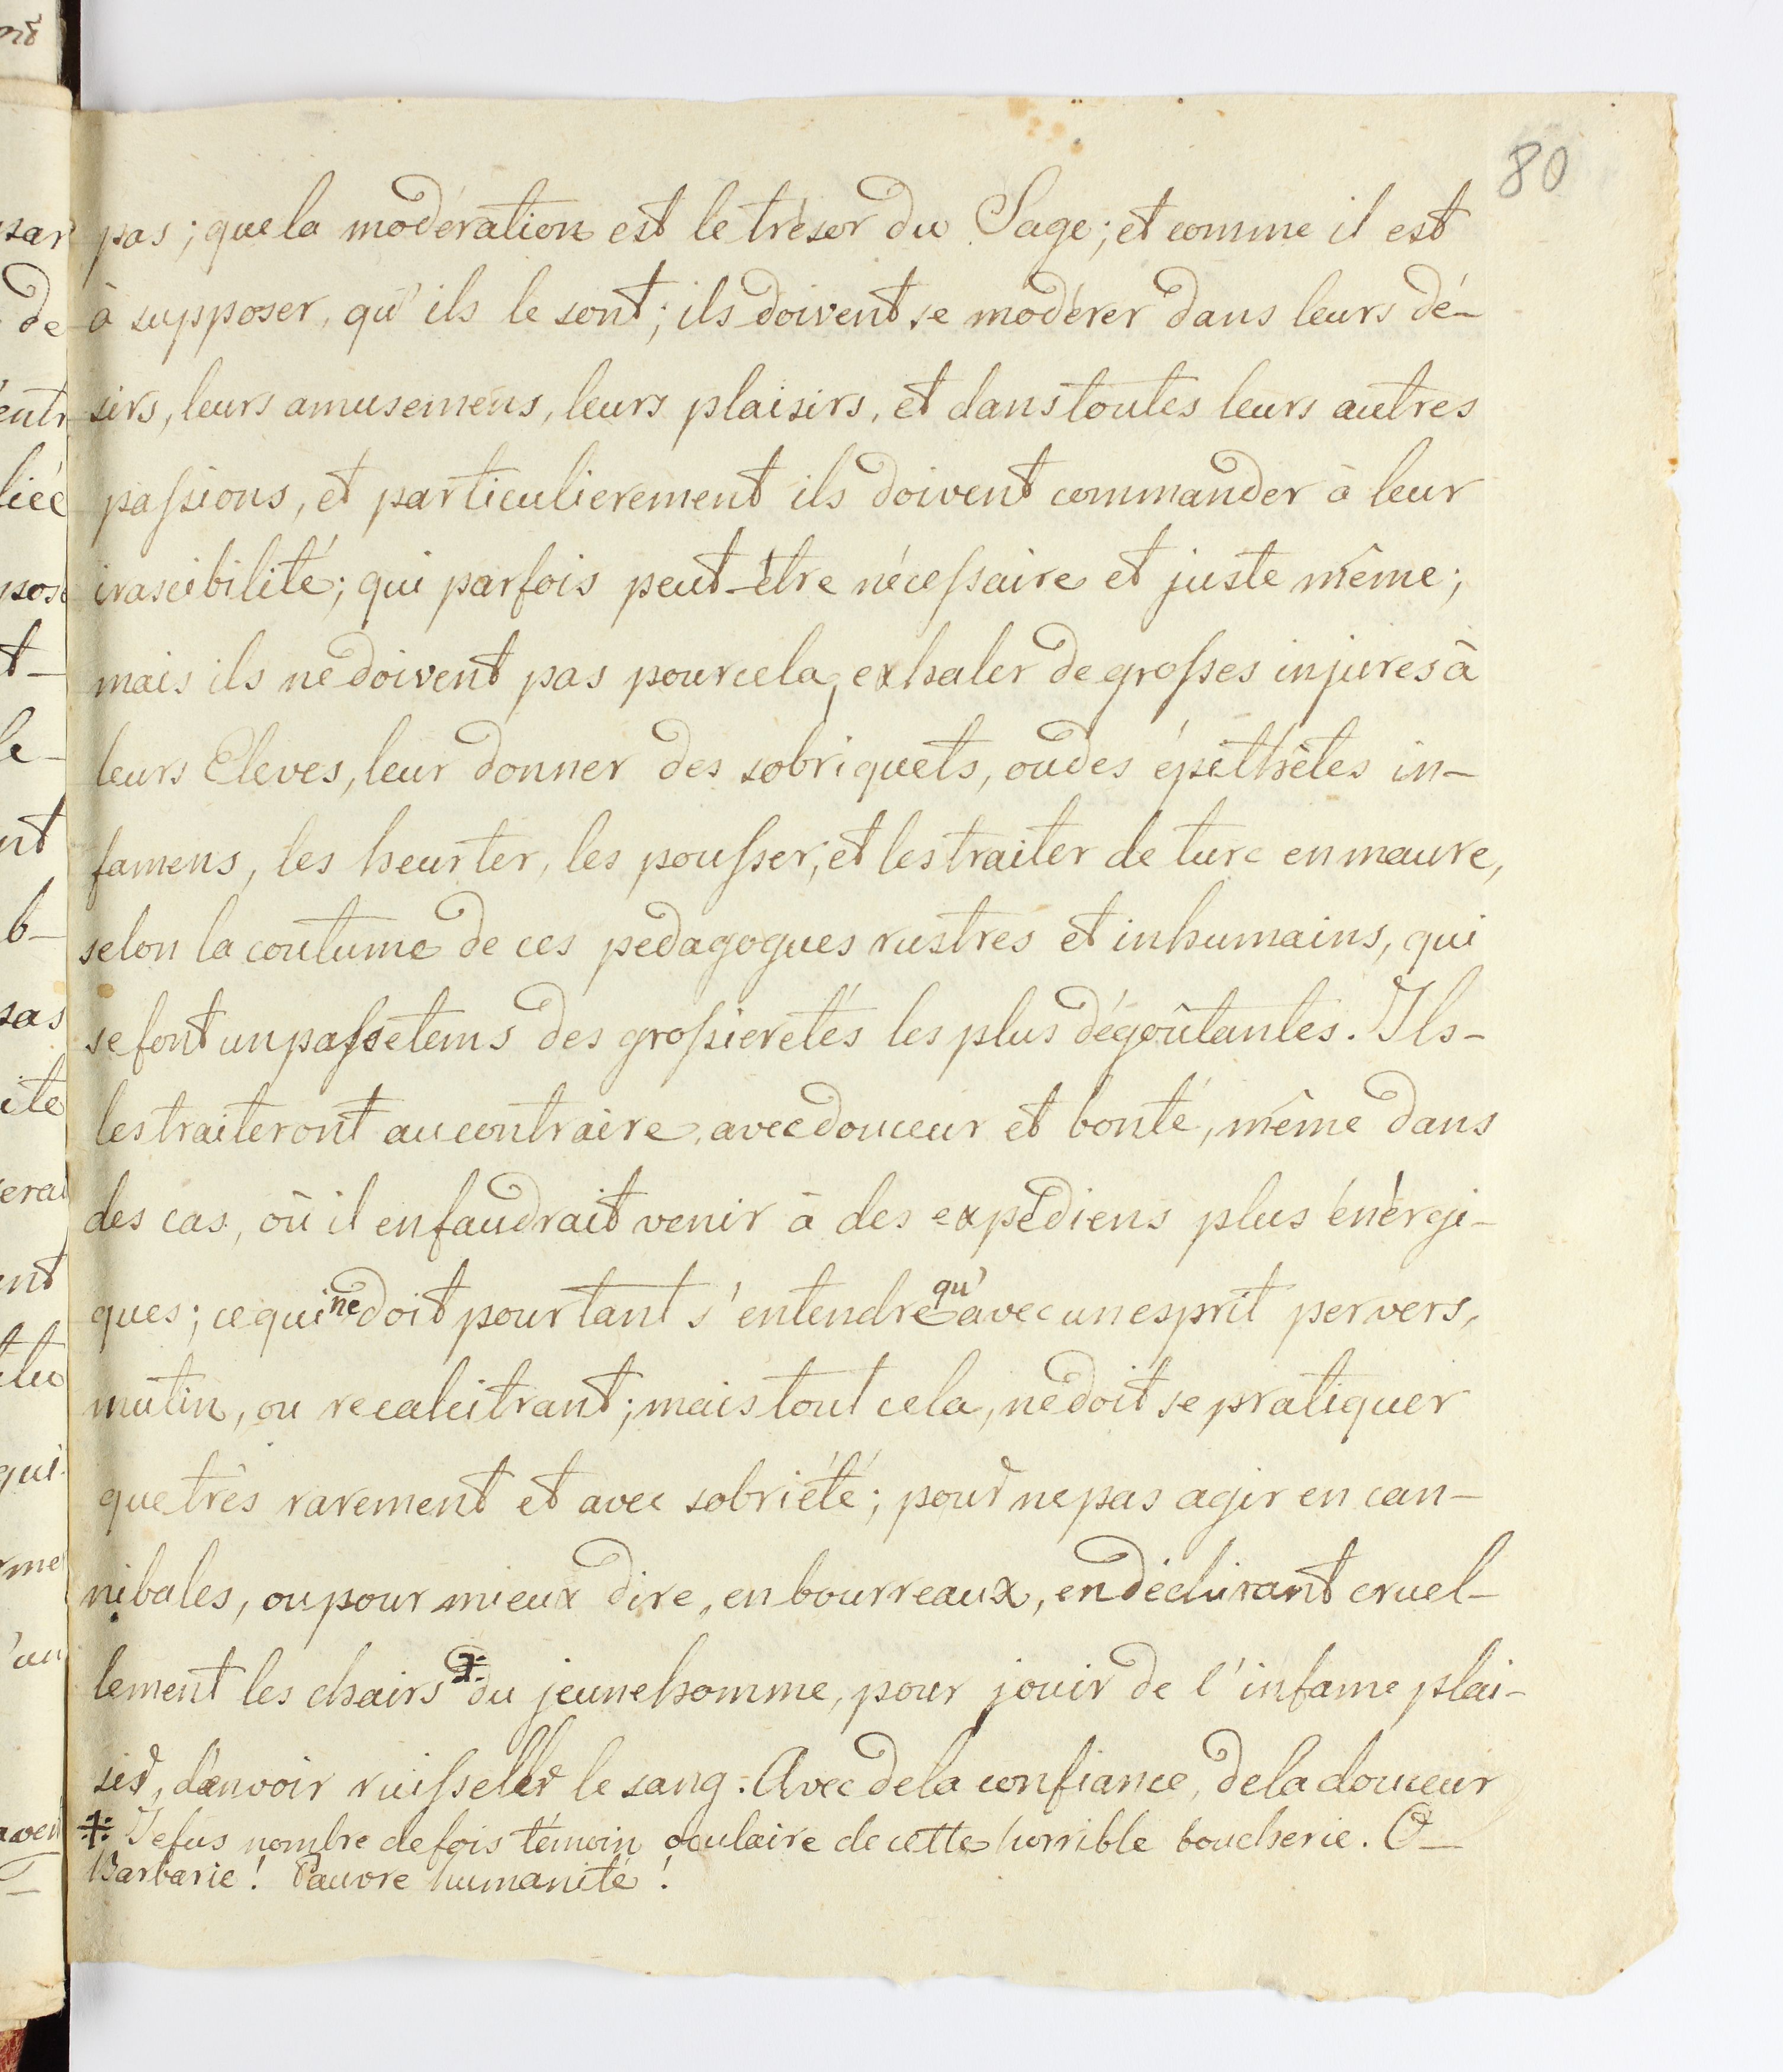 80
pas; que la modération est le trésor du Sage; et comme il est
à supposer, qu'ils le sont; ils doivent se modérer dans leurs dé-
sirs, leurs amusemens, leurs plaisirs, et dans toutes leurs autres
passions, et particulierement ils doivent commander à leur
irascibilité; qui parfois peut-être nécessaire et juste même;
mais ils ne doivent pas pour cela, exhaler de grosses injures à
leurs Eleves, leur donner des sobriquets, ou des épithêtes in-
famens, les heurter, les pousser, et les traiter de turc en maure,
selon la coutume de ces pedagogues rustres et inhumains, qui
se font un passetems des grossieretés les plus dégoûtantes. Ils-
les traiteront au contraire, avec douceur et bonté, même dans
des cas, où il en faudrait venir à des expédiens plus énérgi-
ques; ce qui ne doit pourtant s'entendre qu'avec un esprit pervers,
mutin, ou recalcitrant; mais tout cela, ne doit se pratiquer
que très rarement et avec sobriété; pour ne pas agir en can-
nibales, ou pour mieux dire, en bourreaux, en déchirant cruel-
lement les chairs * du jeune homme, pour jouir de l'infame plai-
sir, d'en voir ruisseller le sang. Avec de la confiance, de la douceur
* Je fus nombre de fois témoin oculaire de cette horrible boucherie. O-
Barbarie! Pauvre humanité!